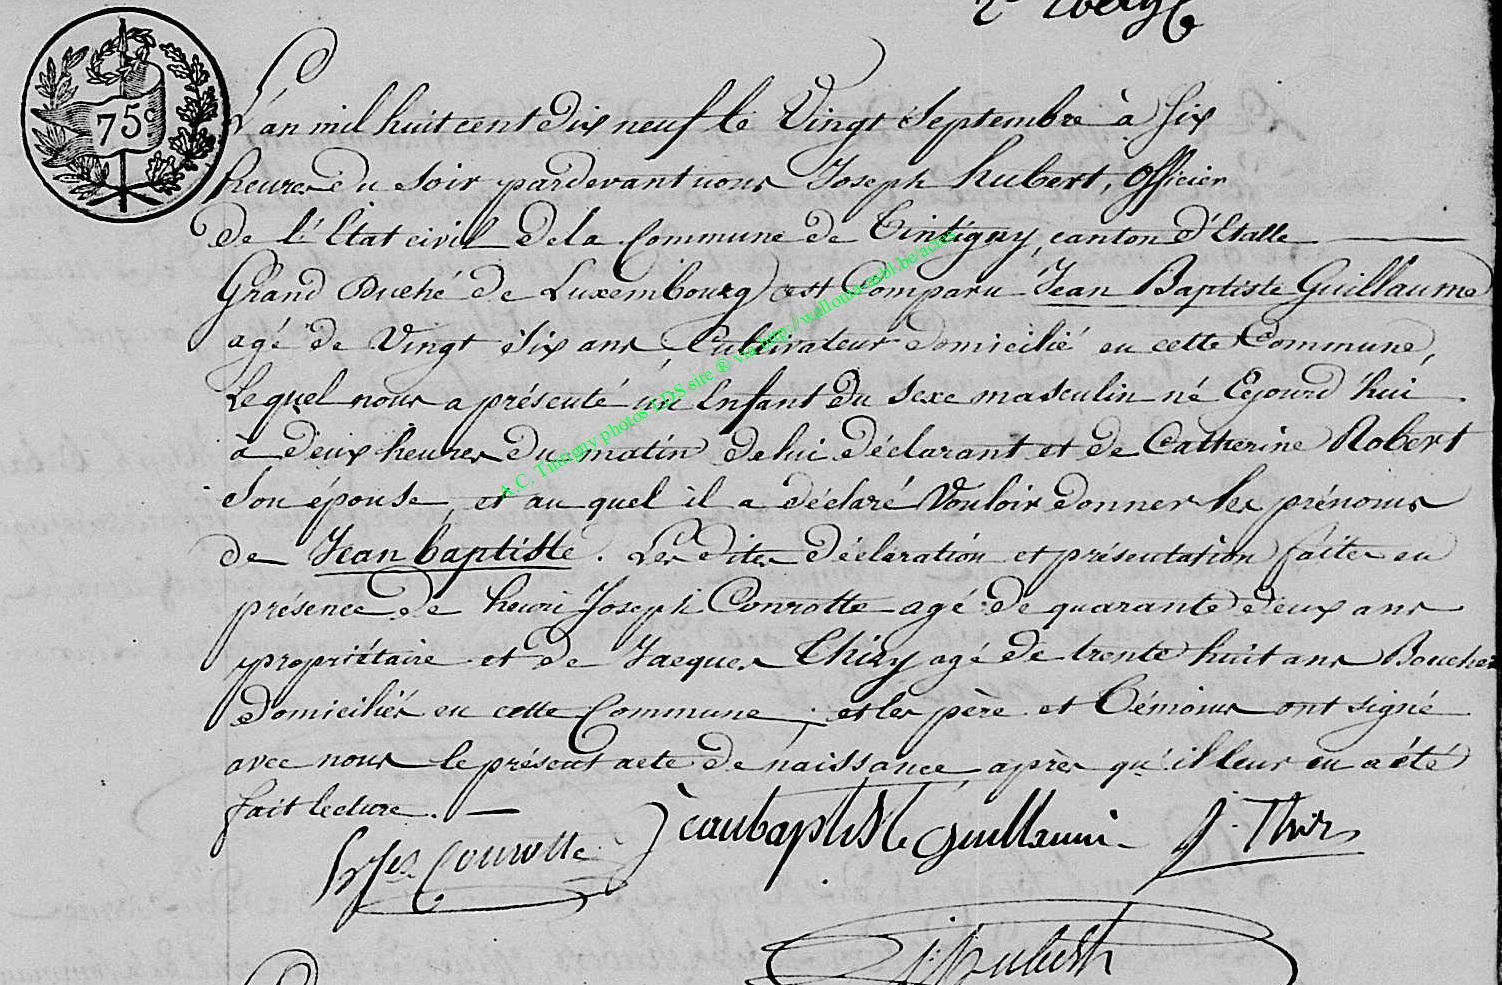 75c
L'an mil huit cent dix neuf le Vingt Septembre à Six
heures du Soir pardevant nous Joseph hubert, Officier
de l'État civil de la Commune de Tintigny, canton d'Etalle
Grand Duché de Luxembourg, est Comparu Jean Baptiste Guillaume
agé de Vingt Six ans, Cultivateur domicilié en cette Commune,
Lequel nous a présenté un Enfant du Sexe masculin né Cejourd'hui
à deux heures du matin de lui déclarant et de Catherine Robert
Son épouse, et au quel il a déclaré Vouloir donner les prénoms
de Jean baptiste. Les dites déclaration et présentation faites en
présence de henri Joseph Conrotte agé de quarante deux ans
propriétaire et de Jacques Thiry agé de trente huit ans Boucher
Domiciliés en cette Commune, et les père et Témoins ont signé
avec nous le présent acte de naissance, après qu'il leur en a été
fait lecture.
H Jh Conrotte Jean baptiste Guillaume J. Thiry
J. hubert
A.C. Tintigny photos LDS site ® via http://wallonia-asbl.be/actes